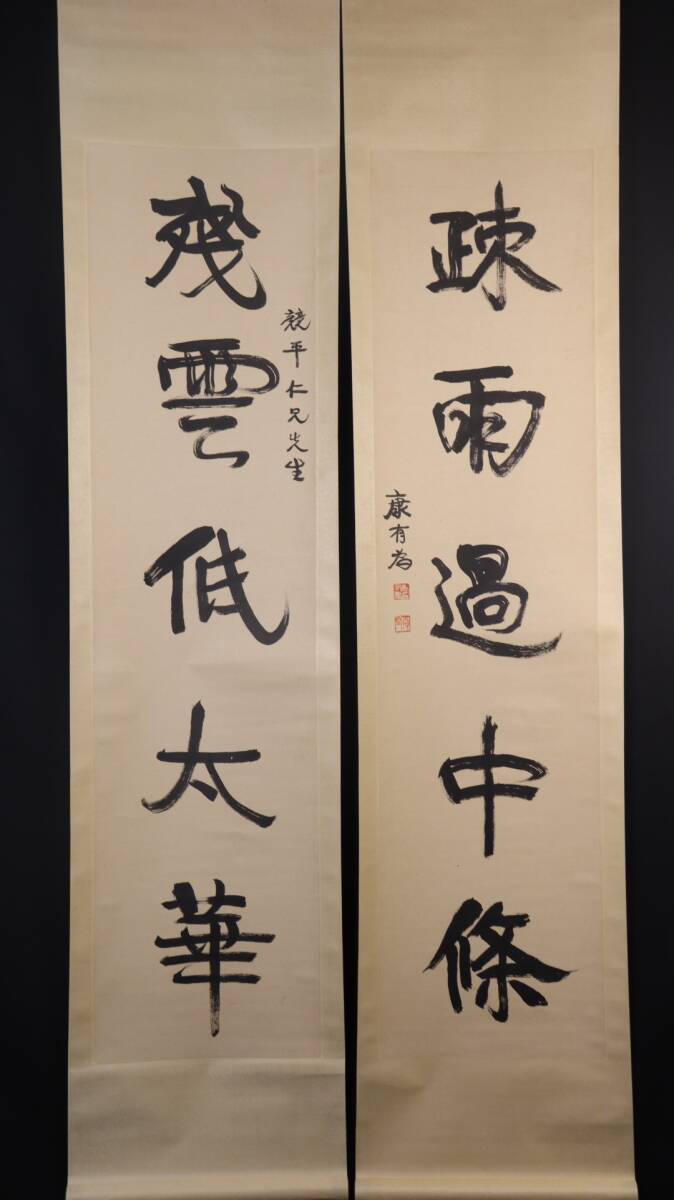 疎雨過中條
康有為
殘雲低太華
競平仁兄先生